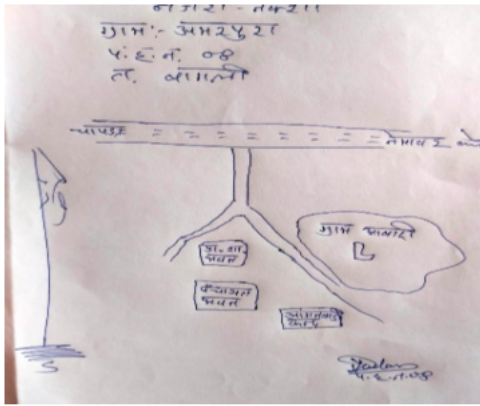 नजरी - नक्शा
ग्राम :- अमरपुरा
प. ह. नं. 08
त. बागली
चापड़ा
नेमावर
ग्राम आबादी
प्रा. शा. भवन
पंचायत भवन
आंगनवाड़ी केन्द्र
S
प. ह. नं. 08